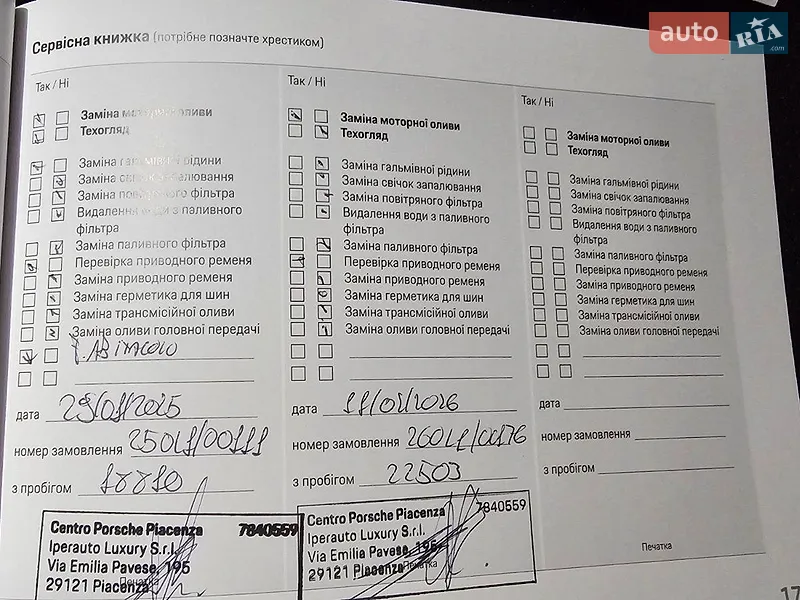 auto RIA .com
Сервісна книжка (потрібне позначте хрестиком)
Так / Ні
Заміна моторної оливи
Техогляд
Заміна гальмівної рідини
Заміна свічок запалювання
Заміна повітряного фільтра
Видалення води з паливного
фільтра
Заміна паливного фільтра
Перевірка приводного ременя
Заміна приводного ременя
Заміна герметика для шин
Заміна трансмісійної оливи
Заміна оливи головної передачі
F. ABITACOLO
дата 29/01/2025
номер замовлення
з пробігом
Centro Porsche Piacenza 7840559
Iperauto Luxury S.r.l.
Via Emilia Pavese, 195
29121 Piacenza
Печатка
Так / Ні
Заміна моторної оливи
Техогляд
Заміна гальмівної рідини
Заміна свічок запалювання
Заміна повітряного фільтра
Видалення води з паливного
фільтра
Заміна паливного фільтра
Перевірка приводного ременя
Заміна приводного ременя
Заміна герметика для шин
Заміна трансмісійної оливи
Заміна оливи головної передачі
дата
номер замовлення
з пробігом 22503
Centro Porsche Piacenza 7840559
Iperauto Luxury S.r.l.
Via Emilia Pavese, 195
29121 Piacenza
Печатка
Так / Ні
Заміна моторної оливи
Техогляд
Заміна гальмівної рідини
Заміна свічок запалювання
Заміна повітряного фільтра
Видалення води з паливного
фільтра
Заміна паливного фільтра
Перевірка приводного ременя
Заміна приводного ременя
Заміна герметика для шин
Заміна трансмісійної оливи
Заміна оливи головної передачі
дата
номер замовлення
з пробігом
Печатка
17